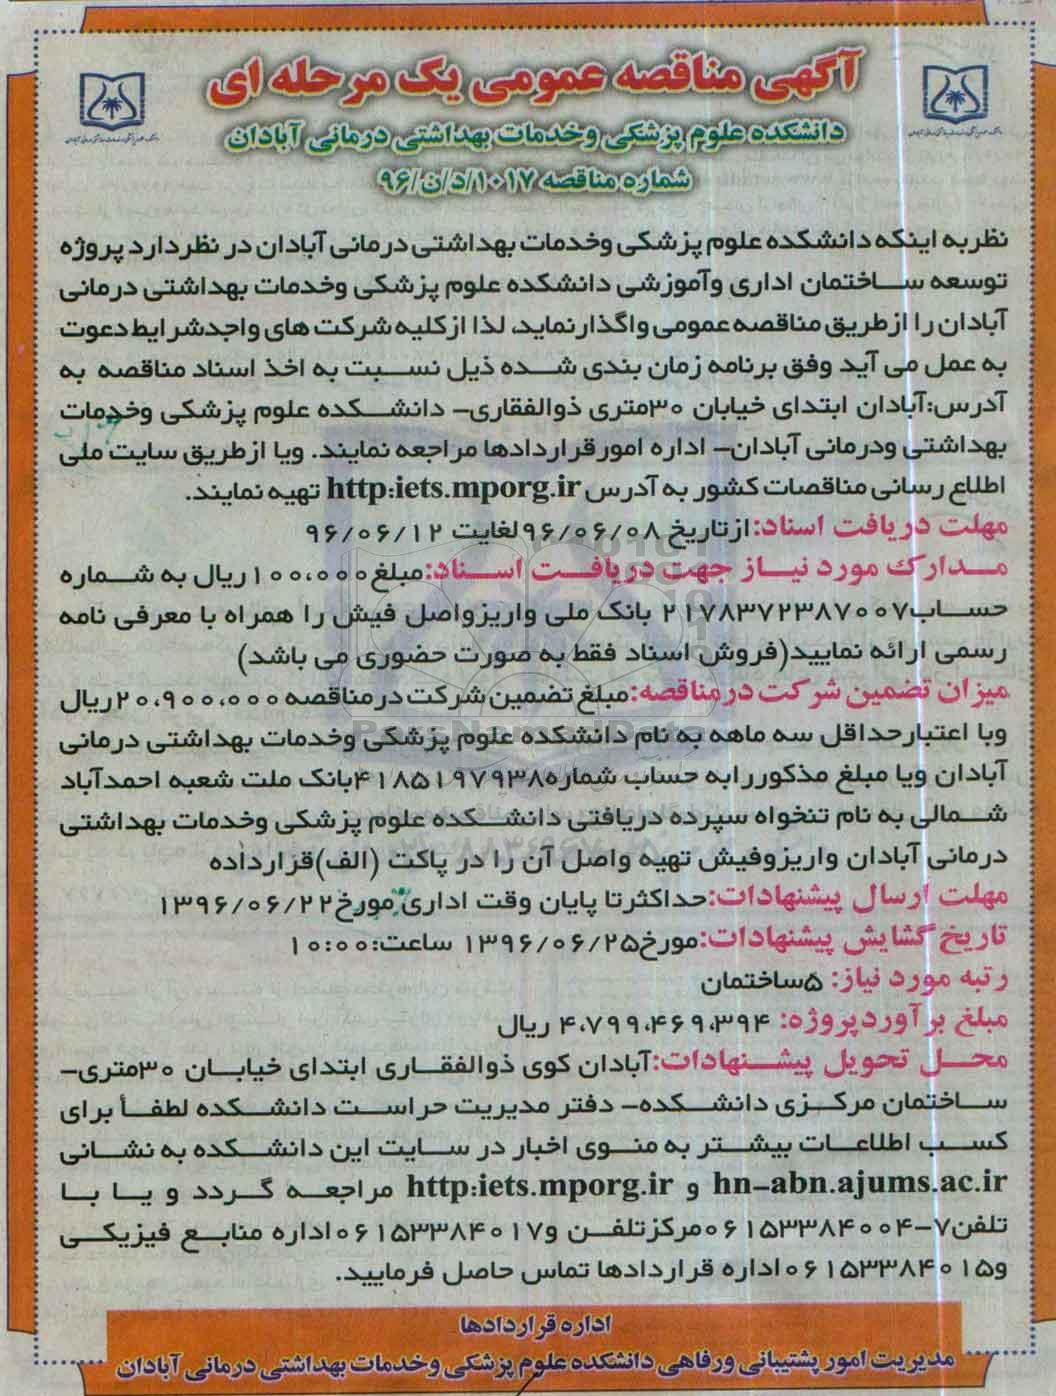 آگهی مناقصه عمومی یک مرحله ای
دانشکده علوم پزشکی وخدمات بهداشتی درمانی آبادان
شماره مناقصه ۱۰۱۷/د/ن/۹۶
نظربه اینکه دانشکده علوم پزشکی وخدمات بهداشتی درمانی آبادان در نظردارد پروژه
توسعه ساختمان اداری وآموزشی دانشکده علوم پزشکی وخدمات بهداشتی درمانی
آبادان را ازطریق مناقصه عمومی واگذارنماید، لذا ازکلیه شرکت های واجدشرایط دعوت
به عمل می آید وفق برنامه زمان بندی شده ذیل نسبت به اخذ اسناد مناقصه به
آدرس:آبادان ابتدای خیابان ۳۰متری ذوالفقاری– دانشکده علوم پزشکی وخدمات
بهداشتی ودرمانی آبادان– اداره امورقراردادها مراجعه نمایند. ویا ازطریق سایت ملی
اطلاع رسانی مناقصات کشور به آدرس http:iets.mporg.ir تهیه نمایند.
مهلت دریافت اسناد:ازتاریخ ۹۶/۰۶/۰۸ لغایت ۹۶/۰۶/۱۲
مدارک مورد نیاز جهت دریافت اسناد:مبلغ۱۰۰،۰۰۰ریال به شماره
حساب۲۱۷۸۳۷۲۳۸۷۰۰۷ بانک ملی واریزواصل فیش را همراه با معرفی نامه
رسمی ارائه نمایید(فروش اسناد فقط به صورت حضوری می باشد)
میزان تضمین شرکت درمناقصه:مبلغ تضمین شرکت درمناقصه ۲۰،۹۰۰،۰۰۰ریال
وبا اعتبارحداقل سه ماهه به نام دانشکده علوم پزشکی وخدمات بهداشتی درمانی
آبادان ویا مبلغ مذکوررابه حساب شماره۴۱۸۵۱۹۷۹۳۸بانک ملت شعبه احمدآباد
شمالی به نام تنخواه سپرده دریافتی دانشکده علوم پزشکی وخدمات بهداشتی
درمانی آبادان واریزوفیش تهیه واصل آن را در پاکت (الف)قرارداده
مهلت ارسال پیشنهادات:حداکثرتا پایان وقت اداری مورخ۱۳۹۶/۰۶/۲۲
تاریخ گشایش پیشنهادات:مورخ۱۳۹۶/۰۶/۲۵ ساعت:۱۰:۰۰
رتبه مورد نیاز: ۵ساختمان
مبلغ برآوردپروژه: ۴،۷۹۹،۴۶۹،۳۹۴ ریال
محل تحویل پیشنهادات:آبادان کوی ذوالفقاری ابتدای خیابان ۳۰متری–
ساختمان مرکزی دانشکده– دفتر مدیریت حراست دانشکده لطفاً برای
کسب اطلاعات بیشتر به منوی اخبار در سایت این دانشکده به نشانی
hn–abn.ajums.ac.ir و http:iets.mporg.ir مراجعه گردد و یا با
تلفن۷–۰۶۱۵۳۳۸۴۰۰۴مرکزتلفن و۰۶۱۵۳۳۸۴۰۱۷اداره منابع فیزیکی
و۰۶۱۵۳۳۸۴۰۱۵اداره قراردادها تماس حاصل فرمایید.
اداره قراردادها
مدیریت امور پشتیبانی ورفاهی دانشکده علوم پزشکی وخدمات بهداشتی درمانی آبادان
ParsNamadData